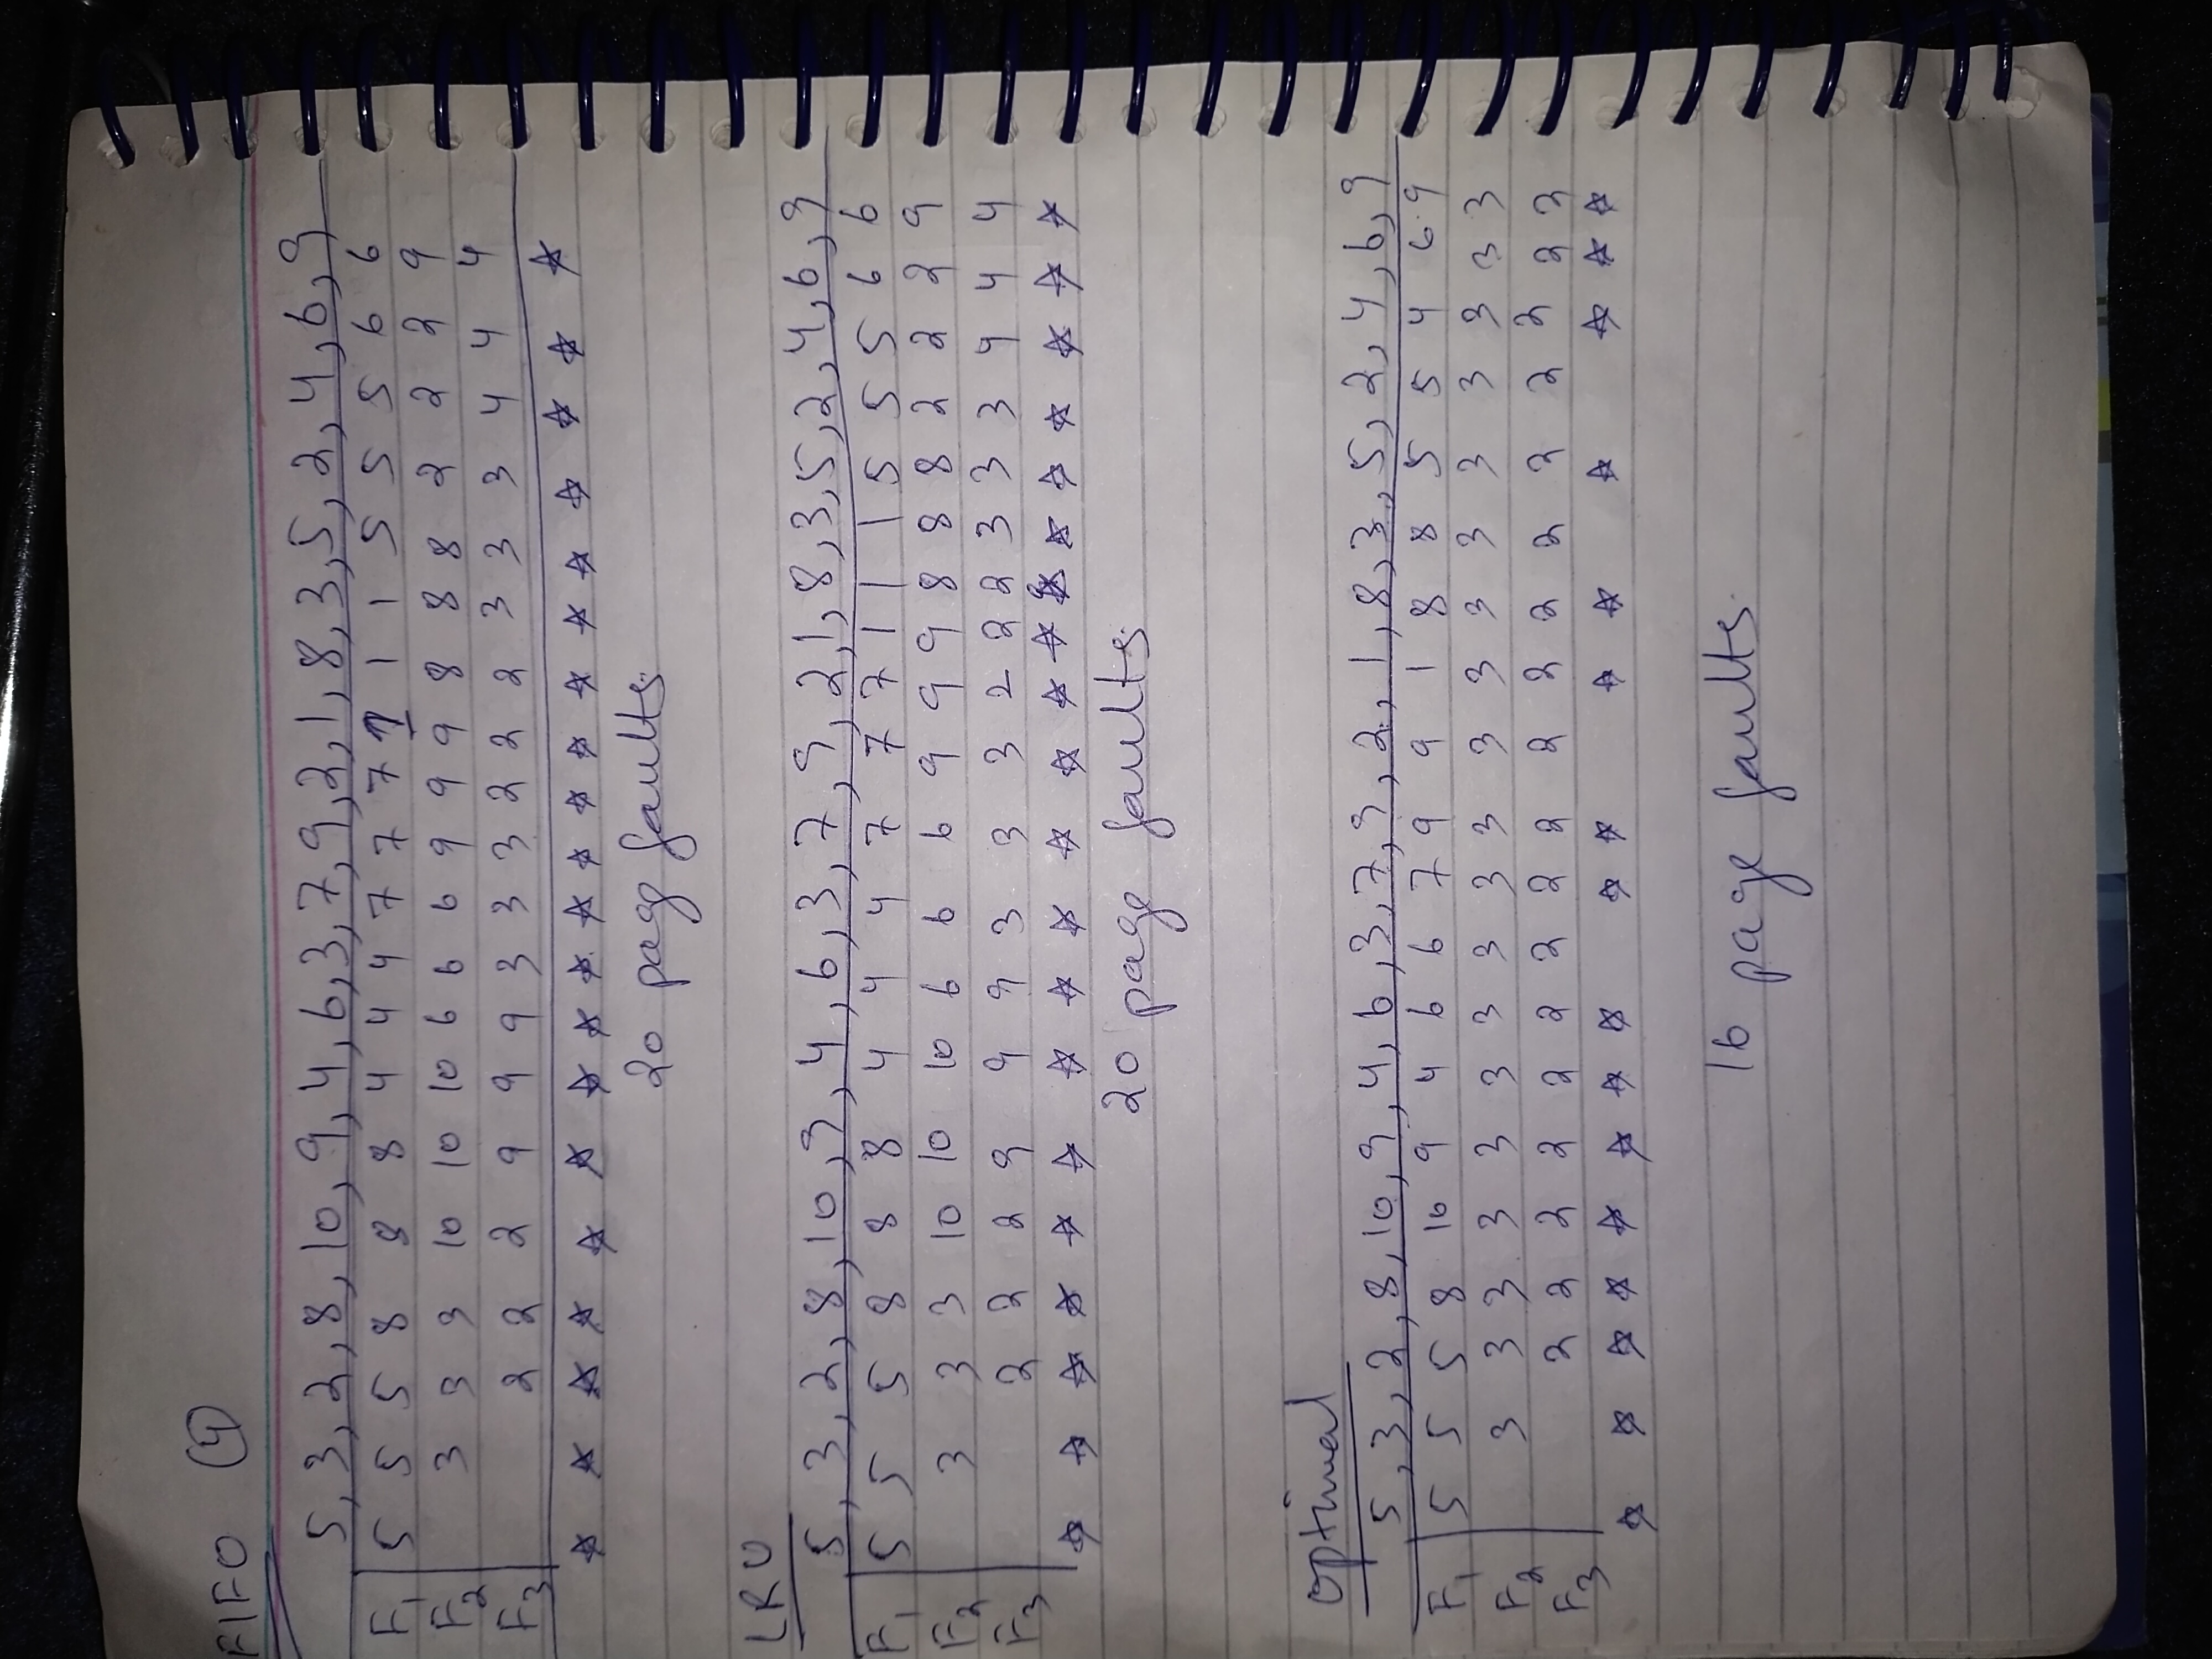 FIFO 4
5, 3, 2, 8, 10, 9, 4, 6, 3, 7, 9, 2, 1, 8, 3, 5, 2, 4, 6, 9
F1 5 5 5 8 8 8 4 4 4 7 7 7 1 1 1 5 5 5 6 6
F2 3 3 3 10 10 10 6 6 6 9 9 9 8 8 8 2 2 2 9
F3 2 2 2 9 9 9 3 3 3 2 2 2 3 3 3 4 4 4
☆ ☆ ☆ ☆ ☆ ☆ ☆ ☆ ☆ ☆ ☆ ☆ ☆ ☆ ☆ ☆ ☆ ☆ ☆ ☆
20 page faults
LRU
5, 3, 2, 8, 10, 9, 4, 6, 3, 7, 9, 2, 1, 8, 3, 5, 2, 4, 6, 9
F1 5 5 5 8 8 8 4 4 4 7 7 7 1 1 1 5 5 5 6 6
F2 3 3 3 10 10 10 6 6 6 9 9 9 8 8 8 2 2 2 9
F3 2 2 2 9 9 9 3 3 3 2 2 2 3 3 3 4 4 4
☆ ☆ ☆ ☆ ☆ ☆ ☆ ☆ ☆ ☆ ☆ ☆ ☆ ☆ ☆ ☆ ☆ ☆ ☆ ☆
20 page faults
optimal
5, 3, 2, 8, 10, 9, 4, 6, 3, 7, 9, 2, 1, 8, 3, 5, 2, 4, 6, 9
F1 5 5 5 8 10 9 4 6 6 7 9 9 1 8 8 5 5 4 6 9
F2 3 3 3 3 3 3 3 3 3 3 3 3 3 3 3 3 3 3 3
F3 2 2 2 2 2 2 2 2 2 2 2 2 2 2 2 2 2 2
☆ ☆ ☆ ☆ ☆ ☆ ☆ ☆ ☆ ☆ ☆ ☆ ☆ ☆ ☆ ☆
16 page faults